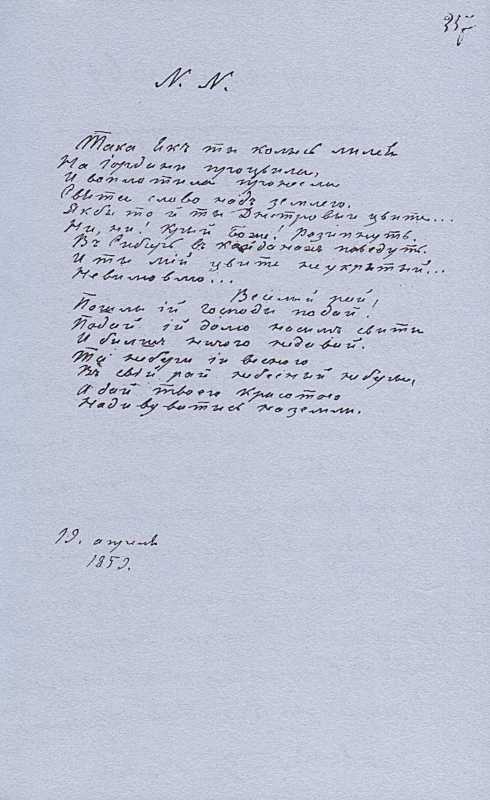 N. N.
Така якъ ты колысь лилея
На Іордани процвила,
И воплотила пронесла
Святее слово надъ землею.
Якбы то й ты Днистровый цвите...
Ни, ни! Крый Боже! Розипнуть.
Въ Сибирь въ кайданахъ поведуть.
И ты мій цвите неукрытый...
Невимовлю...
Веселый рай!
Пошлы ій господы подай!
Подай ій долю насимъ свити
И билшъ ничого недавай.
Та небери іи весною
Въ свій рай небесный небери,
А дай твоею красотою
Надивуватись наземли.
19. апреля
1859.